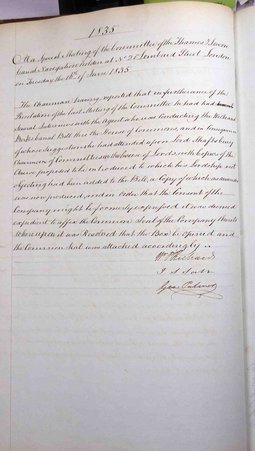 1835
At a Special Meeting of the Committee of the Thames & Severn
Canal Navigation holden at No. Lombard Street London
on Tuesday the 16th of June 1835
The Chairman having reported that in furtherance of the
Resolution of the last Meeting of the Committee he had had
Several Interviews with the Agent who was conducting the Wilts and
Berks Canal Bill thro the House of Commons, and in Consequence
of whose Suggestion he had attended upon Lord Shaftesbury
Chairman of Committees House of Lords, with copies of the
Clause proposed to be introduced to which his Lordship not
objecting had been added to the Bill, a Copy of which
was now produced, and in Order that the Consent of the
Company might be formerly expressed it was deemed
expedient to affix the Common Seal of the Company thereto
whereupon it was Resolved that the Box be opened and
the Common Seal was attached accordingly